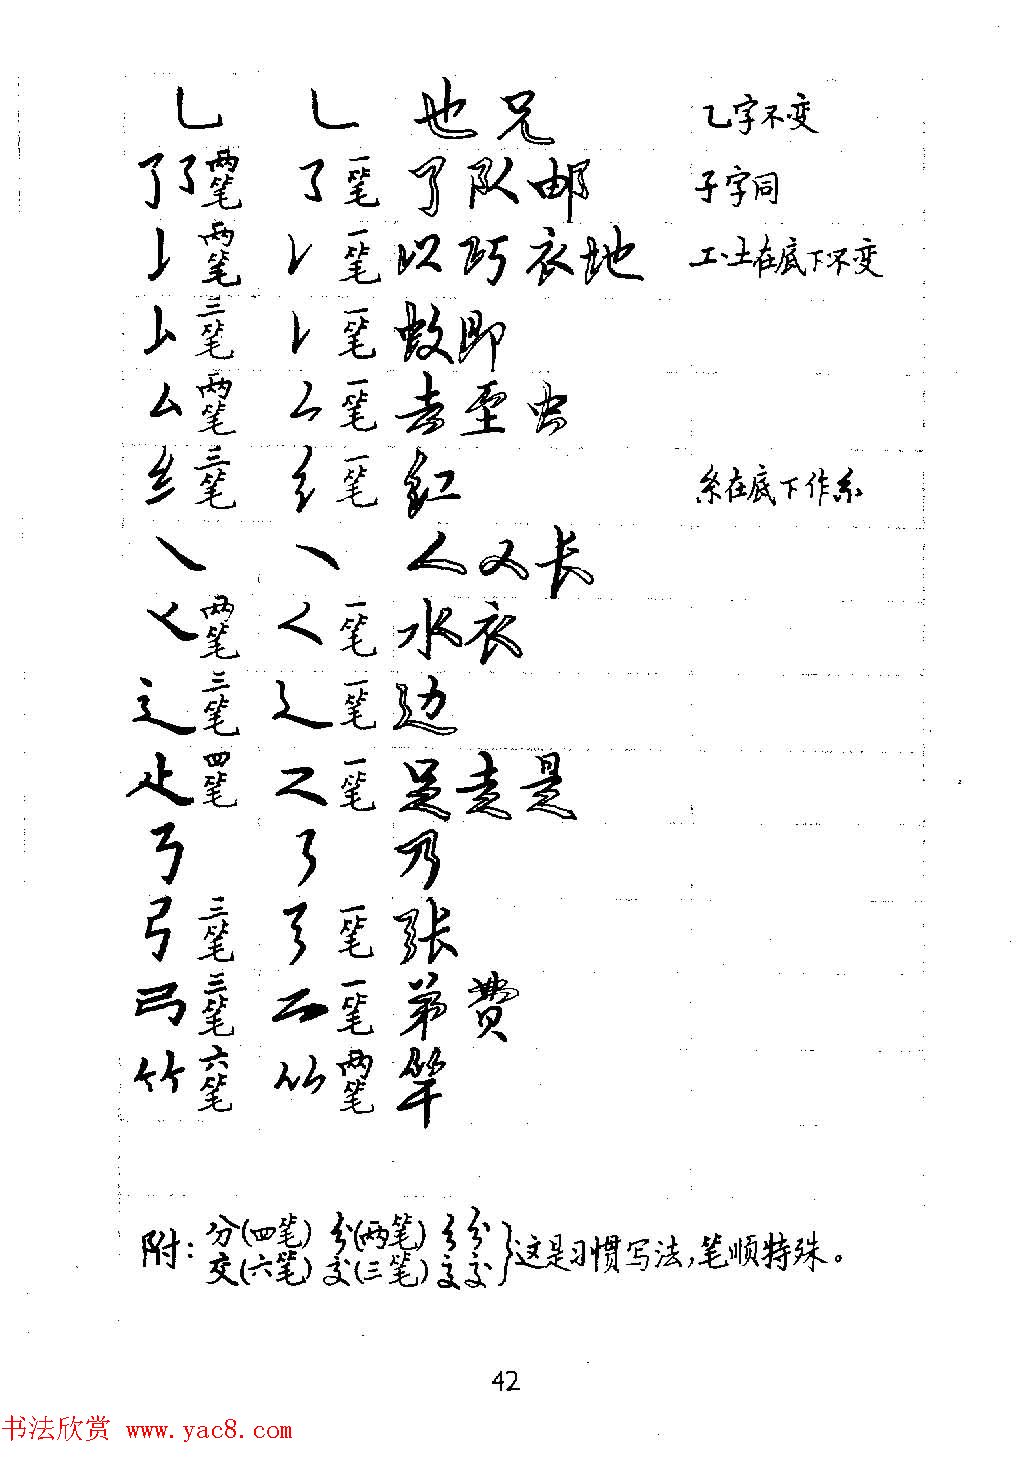 乚 乚 也 兄 乙字不变
了 了 两笔 了 一笔 了 队 邮 子字同
两笔 一笔 以 巧 衣 地 工·土在底下不变
三笔 一笔 蚊 即
厶 两笔 一笔 去 至 虫
纟 三笔 一笔 红 糸在底下作糸
㇏ ㇏ 人 又 长
两笔 一笔 水 衣
辶 三笔 一笔 边
四笔 一笔 足 走 是
乃
弓 三笔 一笔 张
三笔 一笔 弟 費
竹 六笔 两笔 竿
附: 分(四笔) 分(两笔) 分
交(六笔) 交(三笔) 交 } 这是习惯写法,笔顺特殊。
42
书法欣赏 www.yac8.com